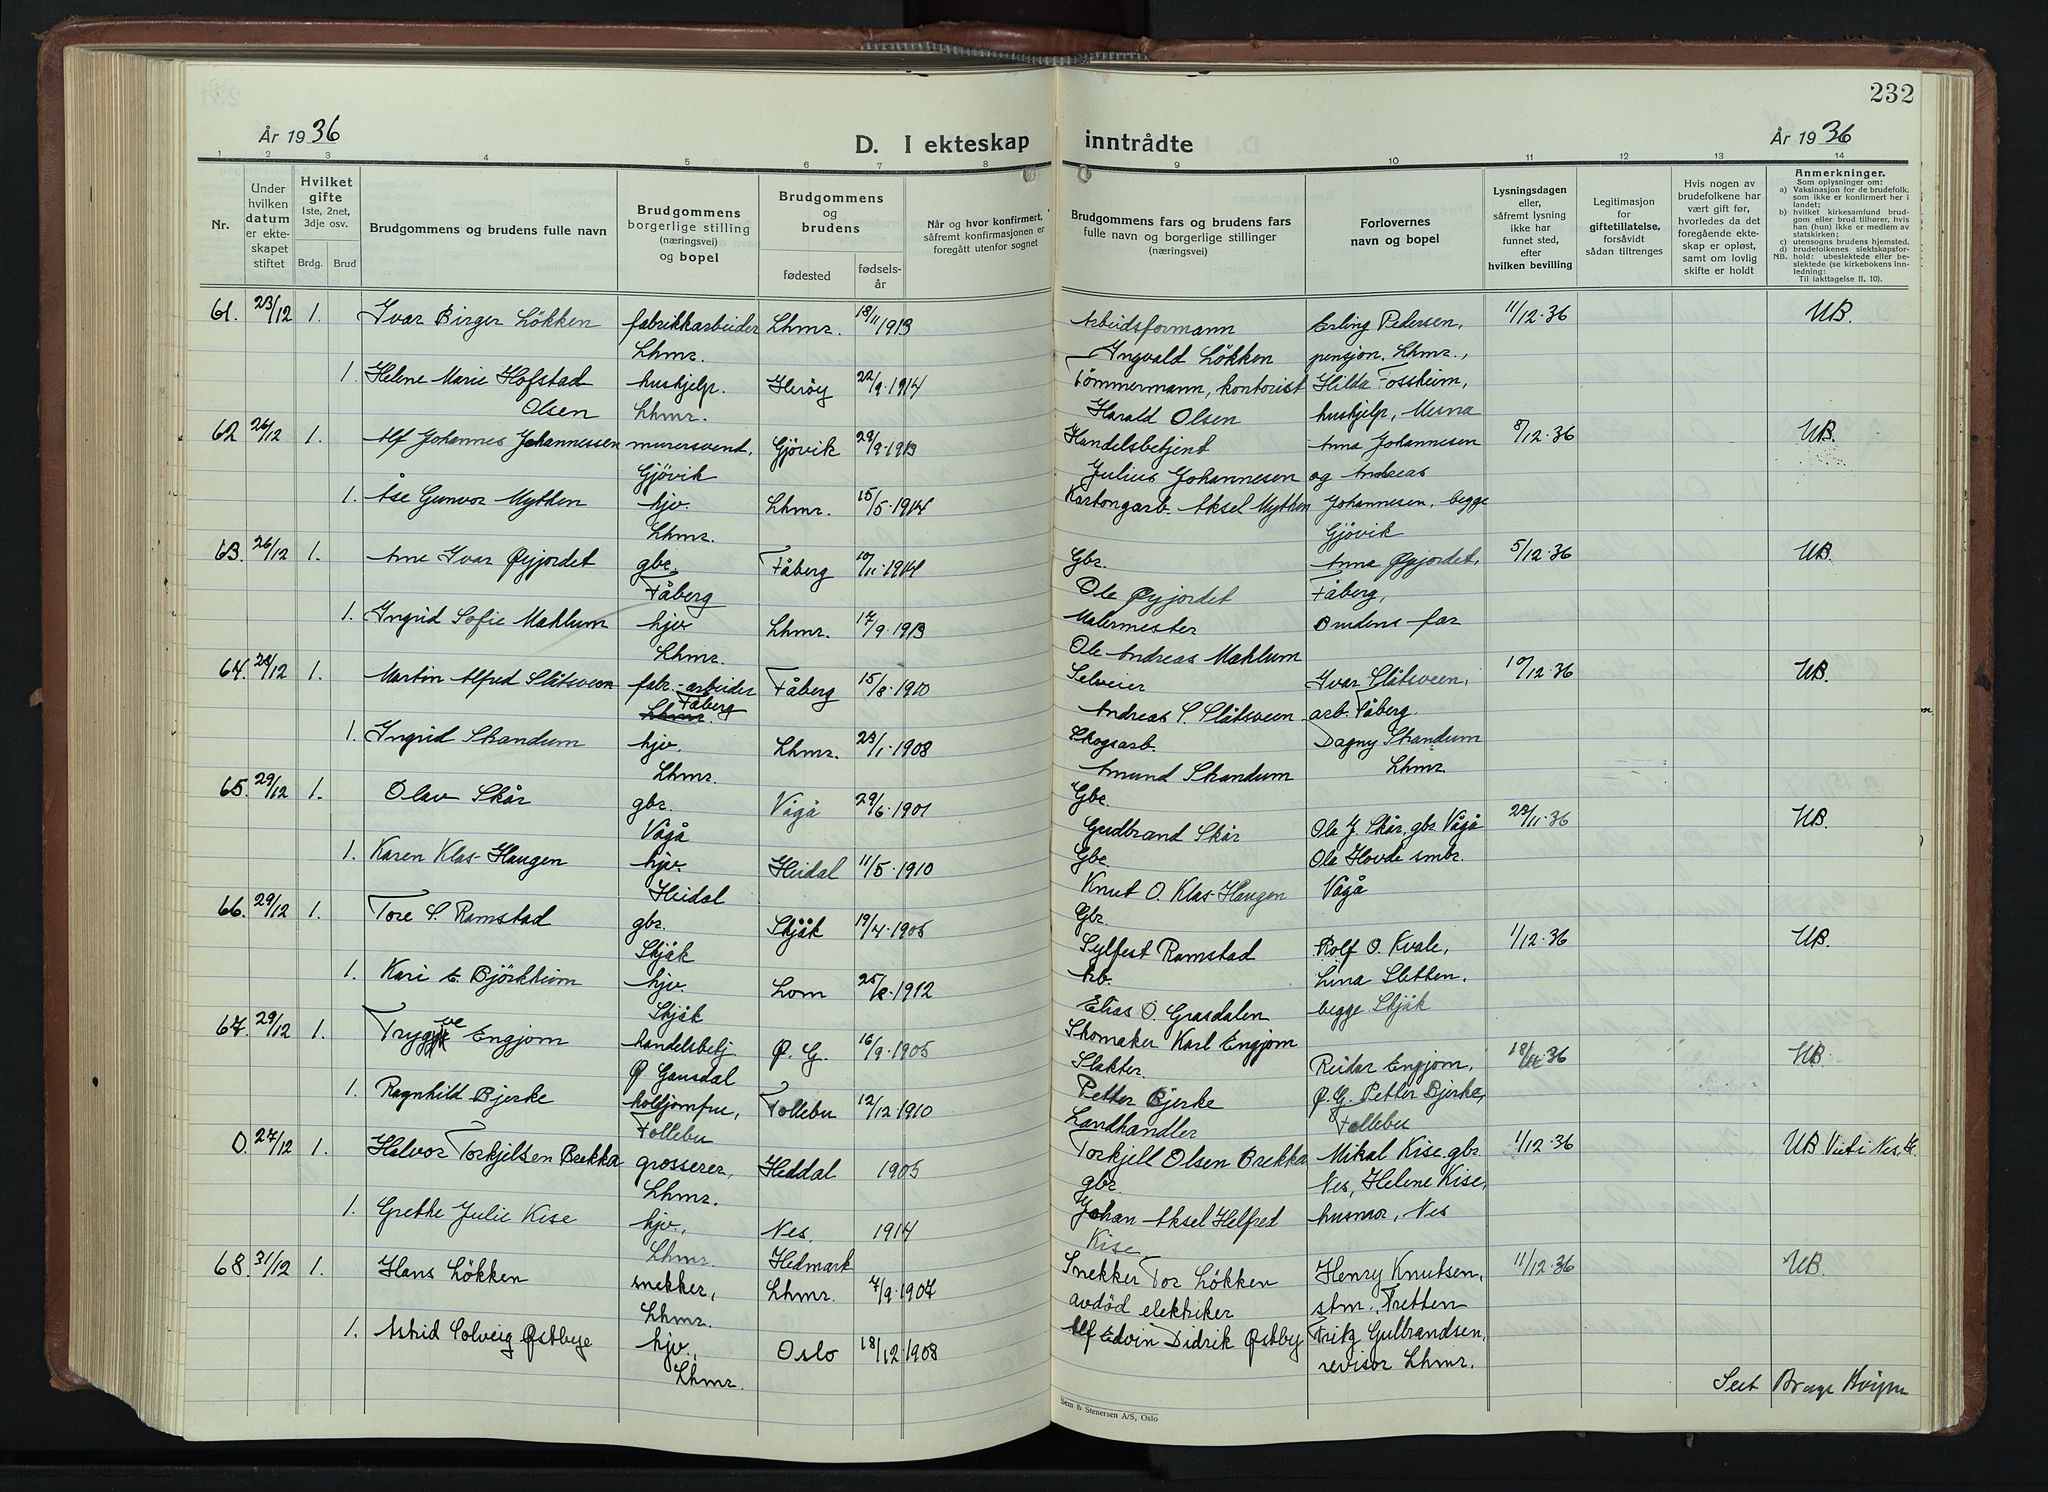 År 1936
D. I ekteskap inntrådte
År 1936
232
1 2 3 4 5 6 7 8 9 10 11 12 13 14
Nr.
Under hvilken datum er ekteskapet stiftet
Hvilket gifte 1ste, 2net, 3dje osv.
Brdg. Brud
Brudgommens og brudens fulle navn
Brudgommens borgerlige stilling (næringsvei) og bopel
Brudgommens og brudens
fødested
fødselsår
Når og hvor konfirmert, såfremt konfirmasjonen er foregått utenfor sognet
Brudgommens fars og brudens fars fulle navn og borgerlige stillinger (næringsvei)
Forlovernes navn og bopel
Lysningsdagen eller, såfremt lysning ikke har funnet sted, efter hvilken bevilling
Legitimasjon for giftetillatelse, forsåvidt sådan tiltrenges
Hvis nogen av brudefolkene har vært gift før, hvorledes da det foregående ekteskap er opløst, samt om lovlig skifte er holdt
Anmerkninger.
Som oplysninger om:
a) Vaksinasjon for de brudefolk, som ikke er konfirmert her i landet;
b) hvilket kirkesamfund brudgom eller brud tilhører, hvis han (hun) ikke er medlem av statskirken;
c) utensogns brudens hjemsted.
d) brudefolkenes slektskapsforhold: ubeslektede eller beslektede (se kirkebokens innledning:
NB. Til iakttagelse II, 10).
61. 23/12 1. Ivar Birger Løkken fabrikkarbeider Lhmr. 18/11 1913 Arbeidsformann Erling Pedersen, 11/12.36 UB.
Lhmr. Ingvald Løkken pensjon. Lhmr.,
1. Helene Marie Hofstad hushjelp. Herøy 22/9.1914 Tømmermann, kontorist Hilda Fossheim,
Olsen Lhmr. Harald Olsen hushjelp, Mesna
62 26/12 1. Alf Johannes Johannessen murersvend, Gjövik 28/9.1913 Handelsbetjent Anna Johannesen 5/12.36 UB.
Gjövik Julius Johannesen og Andreas
1. Åse Gunvor Mythen hjv. Lhmr. 15/5.1914 Kartongarb. Aksel Mythen Johannesen, begge
Lhmr. Gjövik
63. 26/12 1. Arne Ivar Øyjordet gbr. Fåberg 10/11.1914 Gbr. Anna Øyjordet, 5/12.36 UB.
Fåberg Ole Øyjordet Fåberg,
1. Ingrid Sofie Mæhlum hjv Lhmr. 17/9.1913 Malermester Brudens far
Lhmr. Ole Andreas Mæhlum
64. 28/12 1. Martin Alfred Slåtsveen fabr.-arbeider Fåberg 15/8.1910 Selveier Ivar Slåtsveen, 10/12.36 UB.
Lhmr. Fåberg Andreas S. Slåtsveen arb. Fåberg
1. Ingrid Skandum hjv. Lhmr. 23/1.1908 Skogsarb. Dagny Skandum
Lhmr. Amund Skandum Lhmr.
65. 29/12 1. Olav Skår gbr. Vågå 29/6.1901 Gbr. 28/11.36 UB.
Vågå Gudbrand Skår Ola J. Skår, gbr. Vågå
1. Karen Klas-Haugen hjv. Heidal 11/5.1910 Gbr. Ola Hovde smbr.
Heidal Knut O. Klas-Haugen Vågå
66. 29/12 1. Tore S. Ramstad gbr. Skjåk 19/4.1905 Gbr. 1/12.36 UB.
Skjåk Sylfest Ramstad Rolf O. Kvale,
1. Kari E Björkheim hjv. Lom 25/2.1912 Arb. Lina Sletten,
Skjåk Elias O. Grasdalen begge Skjåk
67. 29/12 1. Trygve Engjom handelsbetj Ø. G. 16/9.1905 Skomaker Karl Engjom
Ø. Gausdal Slakter. Reidar Engjom, 18/12.36 UB.
1. Ragnhild Bjerke koldjomfru, Follebu 12/12 1910 Petter Bjerke Ø. G. Petter Bjerke,
Follebu Landhandler Follebu
0. 27/12 1. Halvor Torkjelsen Brekka grosserer, Heddal 1905 Torkjell Olsen Brekka Mikal Kise gbr. 1/12.36 UB Viet i Nes. H.
Lhmr. gbr. Nes, Helene Kise,
1. Grethe Julie Kise hjv. Nes. 1914 Johan Aksel Helfred husmor, Nes
Lhmr. Hedmark Kise
68. 31/12 1. Hans Løkken snekker, Lhmr. 7/9.1907 Snekker Tor Løkken Henry Knutsen, 11/12.36 UB.
Lhmr. avdöd elektriker stm. Tretten
1. Astrid Solveig Østbye hjv., Oslo 18/12.1908 Alf Edvin Didrik Østby Fritz Gulbrandsen,
Lhmr. revisor Lhmr.
Sem & Stenersen A/S, Oslo